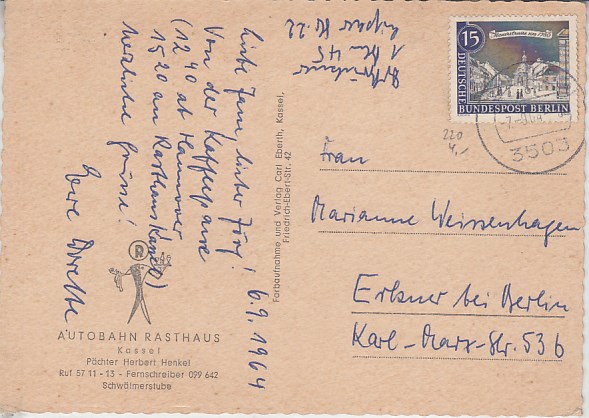 6.9.1964
Liebe Jane, lieber Jörg!
Von der Kaffeepause
(12 40 ab Hannover
15 20 an Rasthaus Kassel)
herzliche Grüsse!
Eure
Farbaufnahme und Verlag Carl Eberth, Kassel,
Friedrich-Ebert-Str. 42
A'UTOBAHN RASTHAUS
Kassel
Pächter Herbert Henkel
Ruf 57 11 - 13 - Fernschreiber 099 642
Schwälmerstube
R
15
DEUTSCHE
BUNDESPOST BERLIN
3503
220
4,-
Frau
Marianne Weissenhagen
Erkner bei Berlin
Karl-Marx-Str. 53b